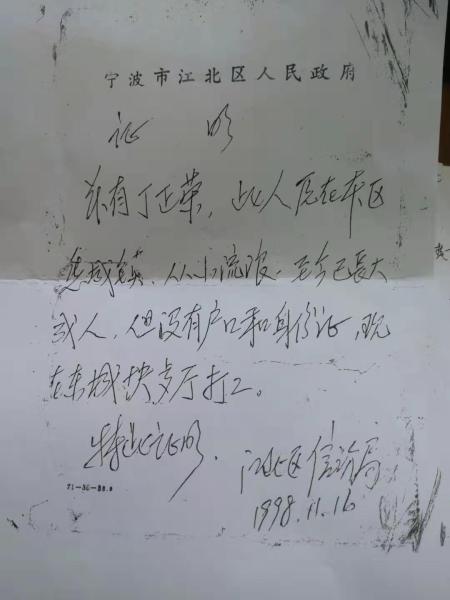 宁波市江北区人民政府
证 明
兹有丁正荣，此人居在本区
慈城镇、从小流浪、至今已长大
成人，但没有户口和身份证，现
在东城 厅打工。
特此证明.
江北区信访局
1998.11.16